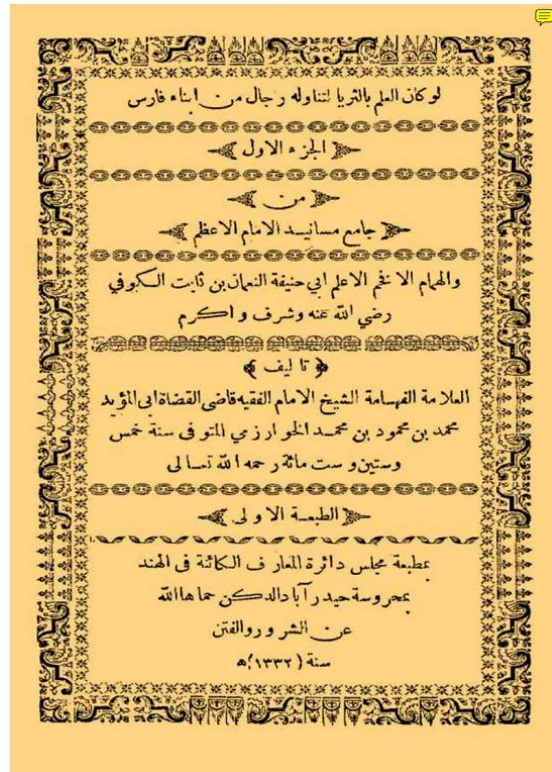 لو كان العلم بالثريا لتناوله رجال من ابناء فارس
الجزء الاول
من
جامع مسانيد الامام الاعظم
والهمام الافخم الاعلم ابي حنيفة النعمان بن ثابت الكوفي
رضي الله عنه وشرف واكرم
تاليف
العلامة الفهامة الشيخ الامام الفقيه قاضى القضاة ابى المؤيد
محمد بن محمود بن محمد الخوارزمي المتوفى سنة خمس
وستين وست مائة رحمه الله تعالى
الطبعة الاولى
بمطبعة مجلس دائرة المعارف الكائنة فى الهند
بمحروسة حيدرآباد الدكن حماها الله
عن الشرور والفتن
سنة (١٣٣٢)ه